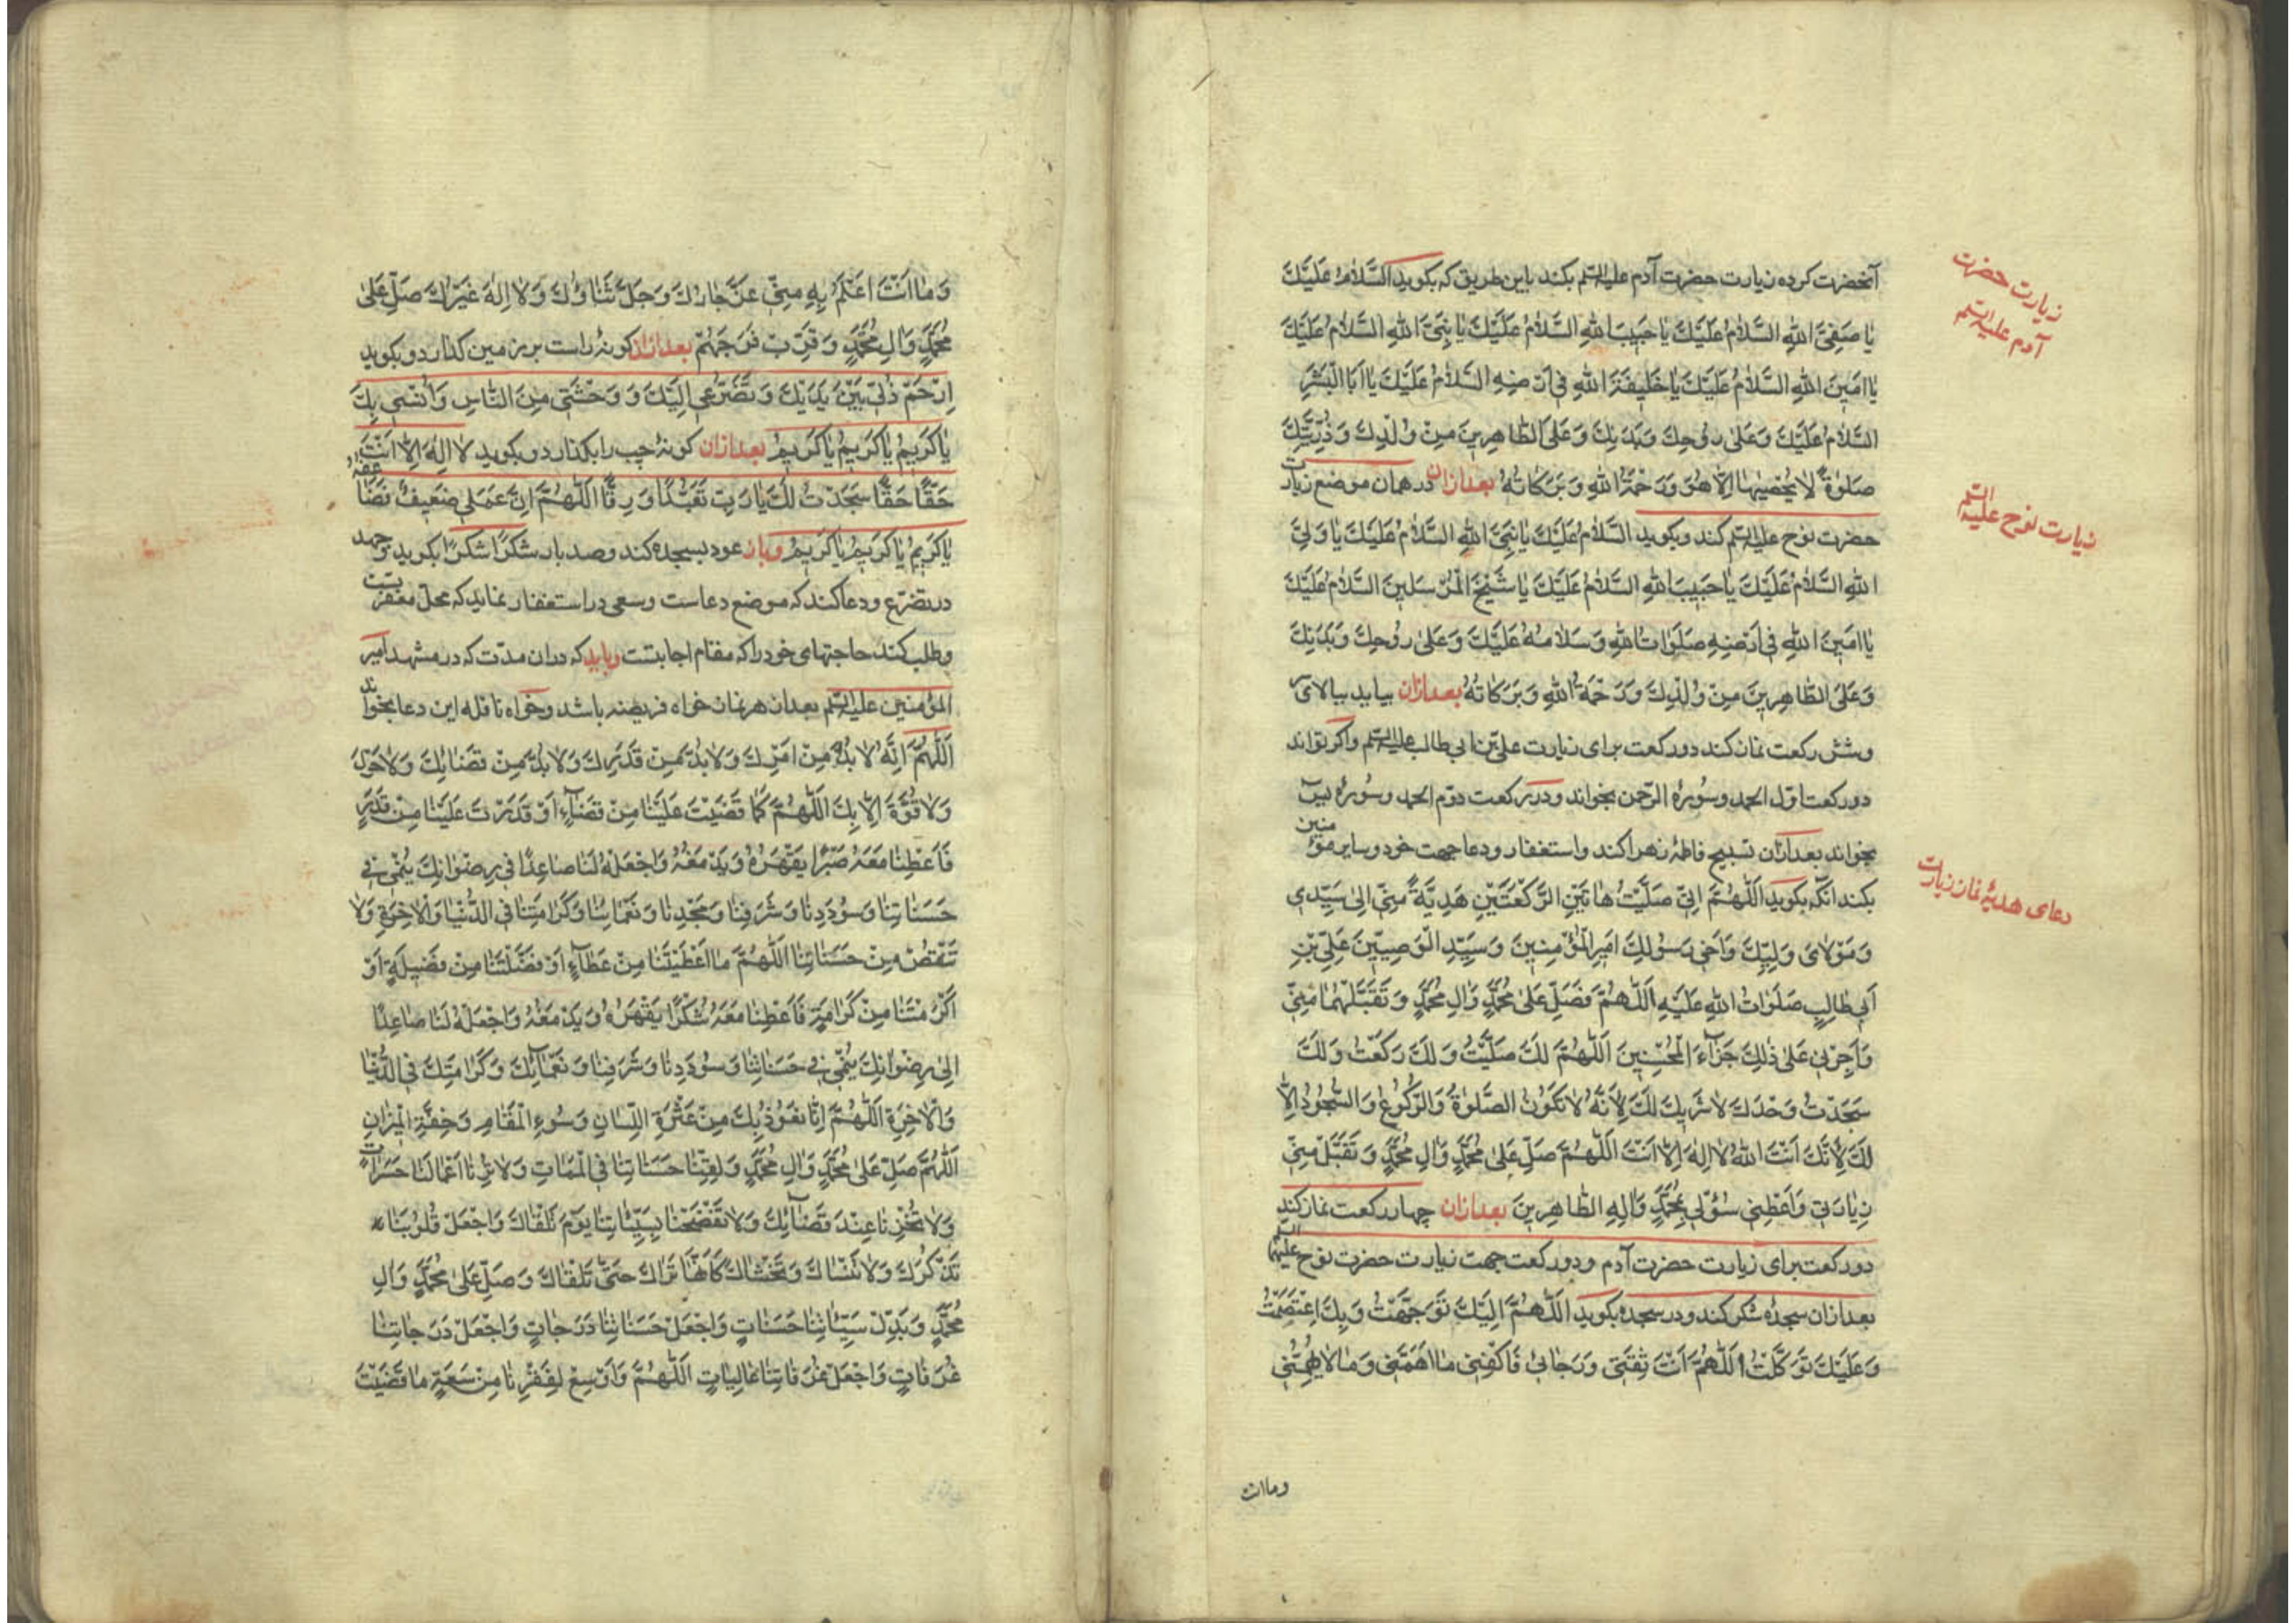 آنحضرت کرده زیارت حضرت آدم علیه السلم بکند باین طریق که بکوید اَلسَّلامُ عَلَیْكَ
یا صَفِیَّ اللهِ السَّلامُ عَلَیْكَ یا حَبِیبَ اللهِ السَّلامُ عَلَیْكَ یا نَبِیَّ اللهِ السَّلامُ عَلَیْكَ
یا اَمِینَ اللهِ السَّلامُ عَلَیْكَ یا خَلِیفَةَ اللهِ فی اَرْضِهِ السَّلامُ عَلَیْكَ یا اَبَا الْبَشَرِ
السَّلامُ عَلَیْكَ وَعَلی رُوحِكَ وَبَدَنِكَ وَعَلَی الطّاهِرِینَ مِنْ وُلْدِكَ وَذُرِّیَّتِكَ
صَلوةً لا یُحْصِیها اِلّا هُوَ وَرَحْمَةُ اللهِ وَبَرَکاتُهُ بعدازان در همان موضع زیارت
حضرت نوح علیه السلم کند وبکوید السَّلامُ عَلَیْكَ یا نَبِیَّ اللهِ السَّلامُ عَلَیْكَ یا وَلِیَّ
اللهِ السَّلامُ عَلَیْكَ یا حَبِیبَ اللهِ السَّلامُ عَلَیْكَ یا شَیْخَ الْمُرْسَلِینَ السَّلامُ عَلَیْكَ
یا اَمِینَ اللهِ فی اَرْضِهِ صَلَواتُ اللهِ وَسَلامُهُ عَلَیْكَ وَعَلی رُوحِكَ وَبَدَنِكَ
وَعَلَی الطّاهِرِینَ مِنْ وُلْدِكَ وَرَحْمَةُ اللهِ وَبَرَکاتُهُ بعدازان بیاید ببالای سر
وشش رکعت نماز کند دو رکعت برای زیارت علی بن ابی طالب علیه السلم واکر تواند
دررکعت اول الحمد وسُورهٔ الرّحمن بخواند ودر رکعت دوّم الحمد وسُورهٔ یس
بخواند بعدازان تسبیح فاطمهٔ زهرا کند واستغفار ودعا جهت خود وسایر مؤمنین
بکند انکه بکوید اَللّٰهُمَّ اِنّی صَلَّیْتُ هاتَیْنِ الرَّکْعَتَیْنِ هَدِیَّةً مِنّی اِلی سَیِّدی
وَمَوْلایَ وَلِیِّكَ وَاَخی رَسُولِكَ اَمِیرِ الْمُؤْمِنِینَ وَسَیِّدِ الْوَصِیّینَ عَلِیِّ بْنِ
اَبی طالِبٍ صَلَواتُ اللهِ عَلَیْهِ اَللّٰهُمَّ فَصَلِّ عَلی مُحَمَّدٍ وَالِ مُحَمَّدٍ وَتَقَبَّلْهُما مِنّی
وَاَجْزِنی عَلی ذٰلِكَ جَزآءَ الْمُحْسِنِینَ اَللّٰهُمَّ لَكَ صَلَّیْتُ وَلَكَ رَکَعْتُ وَلَكَ
سَجَدْتُ وَحْدَكَ لا شَرِیكَ لَكَ لِاَنَّهُ لا تَکُونُ الصَّلوةُ وَالرُّکُوعُ وَالسُّجُودُ اِلّا
لَكَ لِاَنَّكَ اَنْتَ اللهُ لا اِلهَ اِلّا اَنْتَ اَللّٰهُمَّ صَلِّ عَلی مُحَمَّدٍ وَالِ مُحَمَّدٍ وَتَقَبَّلْ مِنّی
زِیارَتی وَاَعْطِنی سُؤْلی بِمُحَمَّدٍ وَالِهِ الطّاهِرِینَ بعدازان چهار رکعت نماز کند
دورکعت برای زیارت حضرت آدم ودورکعت جهت زیارت حضرت نوح علیهما السلم
بعدازان سجدهٔ شکر کند ودر سجده بکوید اَللّٰهُمَّ اِلَیْكَ تَوَجَّهْتُ وَبِكَ اعْتَصَمْتُ
وَعَلَیْكَ تَوَکَّلْتُ اَللّٰهُمَّ اَنْتَ ثِقَتی وَرَجائی فَاکْفِنی ما اَهَمَّنی وَما لا یُهِمُّنی
وما انت
زیارت حضرت
آدم علیه السلم
زیارت نوح علیه السلم
دعای هدیهٔ نماز زیارت
وَما اَنْتَ اَعْلَمُ بِهِ مِنّی عَزَّ جارُكَ وَجَلَّ ثَناؤُكَ وَلا اِلهَ غَیْرُكَ صَلِّ عَلی
مُحَمَّدٍ وَالِ مُحَمَّدٍ وَقَرِّبْ فَرَجَهُمْ بعدازان کونهٔ راست بر زمین کذارد و بکوید
اِرْحَمْ ذُلّی بَیْنَ یَدَیْكَ وَتَضَرُّعی اِلَیْكَ وَوَحْشَتی مِنَ النّاسِ وَاُنْسی بِكَ
یا کَرِیمُ یا کَرِیمُ یا کَرِیمُ بعدازان کونهٔ چپ را بکذارد و بکوید لا اِلهَ اِلّا اَنْتَ
حَقًّا حَقًّا سَجَدْتُ لَكَ یا رَبِّ تَعَبُّدًا وَرِقًّا اَللّٰهُمَّ اِنَّ عَمَلی ضَعِیفٌ فَضاعِفْهُ
یا کَرِیمُ یا کَرِیمُ یا کَرِیمُ وباز عود بسجده کند وصد بار شُکْرًا شُکْرًا بکوید وجهد
در تضرّع ودعا کند که موضع دعاست وسعی در استغفار نماید که محلّ مغفرتست
وطلب کند حاجتهای خود را که مقام اجابتست وباید که دران مدّت که در مشهد امیر
المؤمنین علیه السلم بعد از هر نماز خواه فریضه باشد وخواه نافله این دعا بخواند
اَللّٰهُمَّ اِنَّهُ لا بُدَّ مِنْ اَمْرِكَ وَلا بُدَّ مِنْ قَدَرِكَ وَلا بُدَّ مِنْ قَضائِكَ وَلا حَوْلَ
وَلا قُوَّةَ اِلّا بِكَ اَللّٰهُمَّ کَما قَضَیْتَ عَلَیْنا مِنْ قَضآءٍ اَوْ قَدَرْتَ عَلَیْنا مِنْ قَدَرٍ
فَاَعْطِنا مَعَهُ صَبْرًا یَقْهَرُهُ وَیَدْمَغُهُ وَاجْعَلْهُ لَنا صاعِدًا فی رِضْوانِكَ یُنْمی فی
حَسَناتِنا وَسُؤدَدِنا وَشَرَفِنا وَمَجْدِنا وَنَعْمائِنا وَکَرامَتِنا فی الدُّنْیا وَالْاخِرَةِ وَلا
تَنْقُصْ مِنْ حَسَناتِنا اَللّٰهُمَّ ما اَعْطَیْتَنا مِنْ عَطآءٍ اَوْ فَضَّلْتَنا مِنْ فَضِیلَةٍ اَوْ
اَکْرَمْتَنا مِنْ کَرامَةٍ فَاَعْطِنا مَعَهُ شُکْرًا یَقْهَرُهُ وَیَدْمَغُهُ وَاجْعَلْهُ لَنا صاعِدًا
اِلی رِضْوانِكَ یُنْمی فی حَسَناتِنا وَسُؤدَدِنا وَشَرَفِنا وَنَعْمآئِكَ وَکَرامَتِكَ فی الدُّنْیا
وَالْاخِرَةِ اَللّٰهُمَّ اِنّا نَعُوذُ بِكَ مِنْ عَثْرَةِ اللِّسانِ وَسُوءِ الْمَقامِ وَخِفَّةِ الْمِیزانِ
اَللّٰهُمَّ صَلِّ عَلی مُحَمَّدٍ وَالِ مُحَمَّدٍ وَلَقِّنا حَسَناتِنا فی الْمَماتِ وَلا تُرِنا اَعْمالَنا حَسَراتٍ
وَلا تُخْزِنا عِنْدَ قَضآئِكَ وَلا تَفْضَحْنا بِسَیِّئاتِنا یَوْمَ نَلْقاكَ وَاجْعَلْ قُلُوبَنا
تَذْکُرُكَ وَلا تَنْساكَ وَتَخْشاكَ کَاَنَّها تَراكَ حَتّی تَلْقاكَ وَصَلِّ عَلی مُحَمَّدٍ وَالِ
مُحَمَّدٍ وَبَدِّلْ سَیِّئاتِنا حَسَناتٍ وَاجْعَلْ حَسَناتِنا دَرَجاتٍ وَاجْعَلْ دَرَجاتِنا
غُرُفاتٍ وَاجْعَلْ غُرُفاتِنا عالِیاتٍ اَللّٰهُمَّ وَاَوْسِعْ لِفَقْرِنا مِنْ سَعَةِ ما قَضَیْتَ